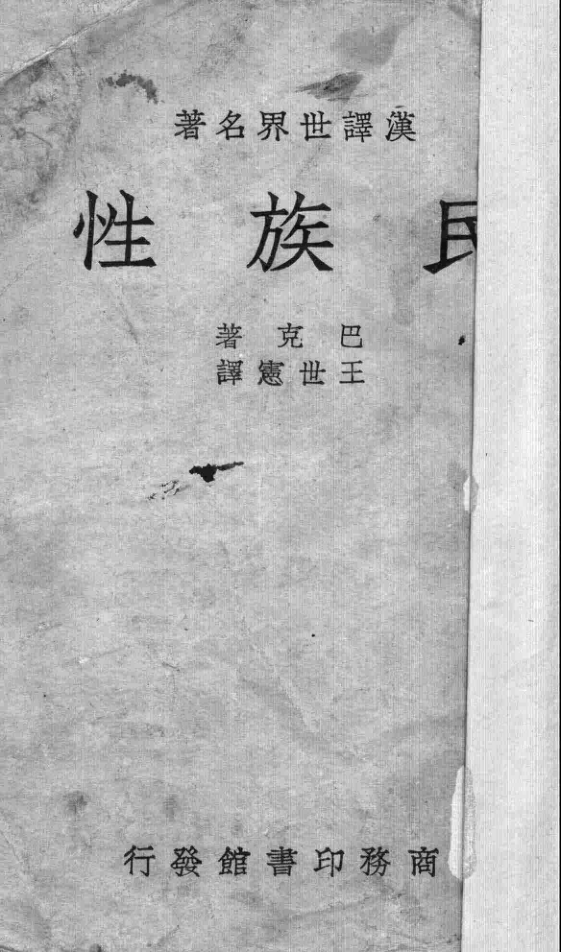 漢譯世界名著
民族性
巴克著
王世憲譯
商務印書館發行